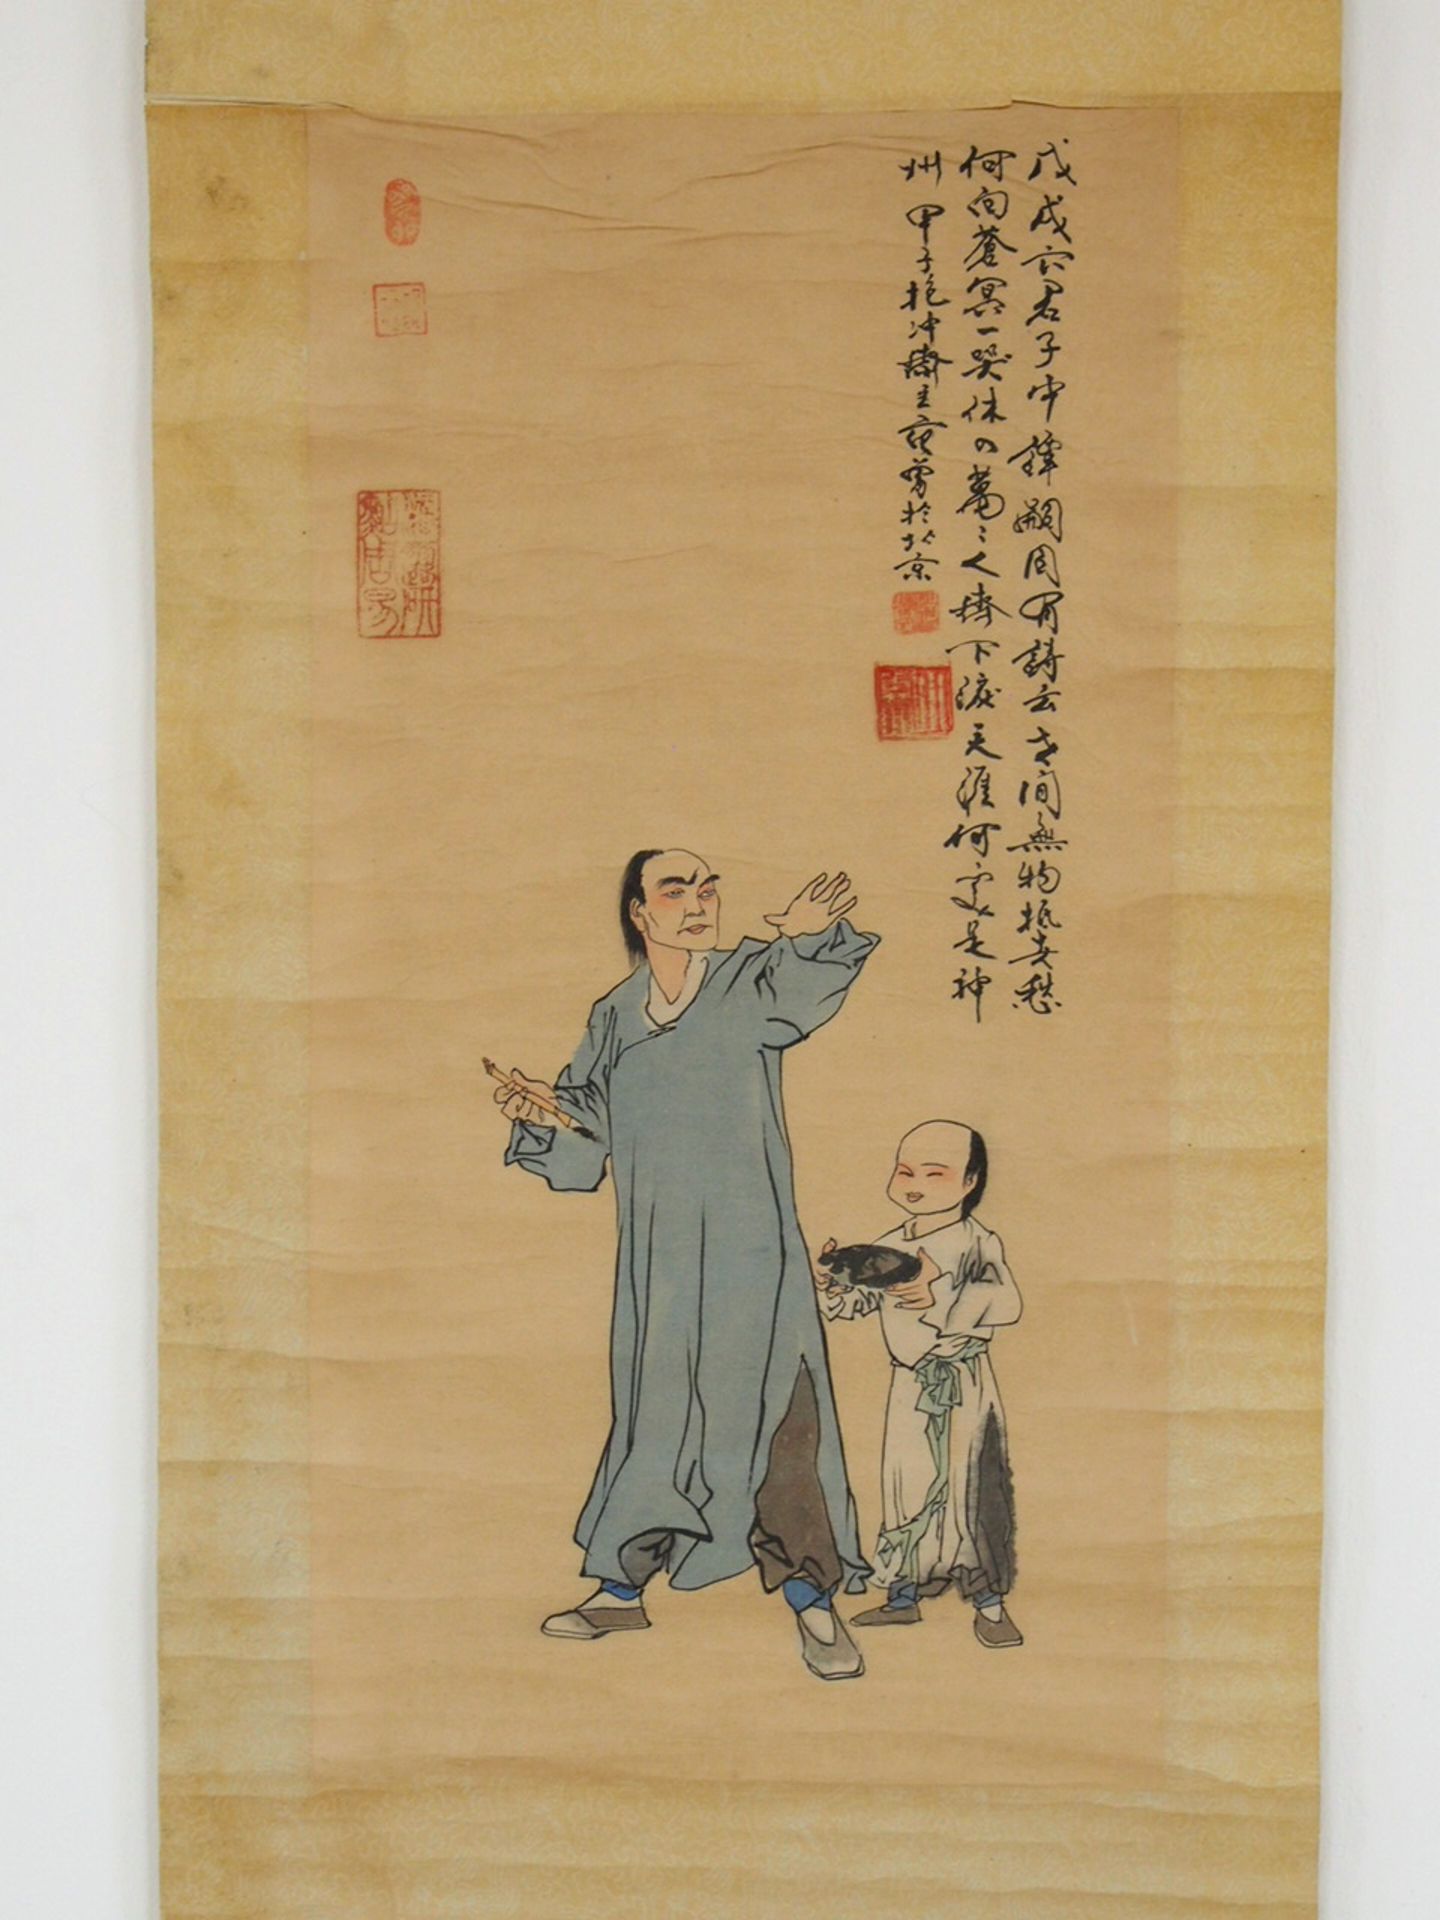 戊戌六君子中譚嗣同有詩云世间無物抵春愁
何向蒼冥一哭休四萬々人齊下淚天涯何處是神
州 甲子抱冲齋主范曾於北京